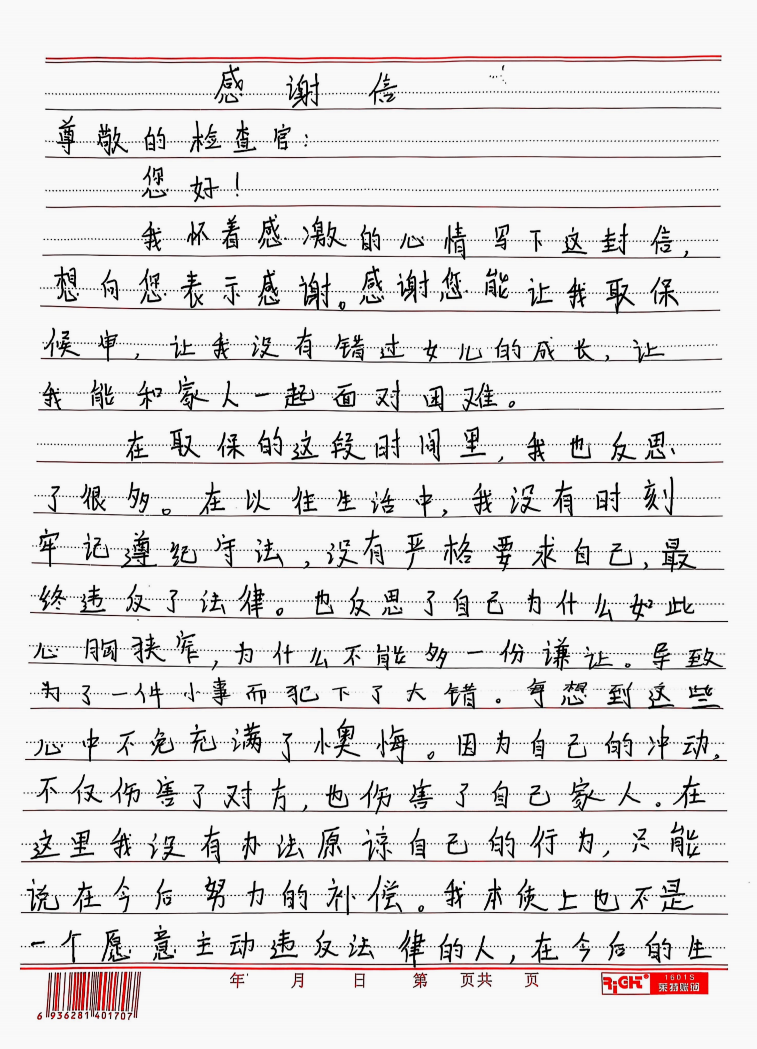 感谢信
尊敬的检查官：
您好！
我怀着感激的心情写下这封信，
想向您表示感谢。感谢您能让我取保
候申，让我没有错过女儿的成长，让
我能和家人一起面对困难。
在取保的这段时间里，我也反思
了很多。在以往生活中，我没有时刻
牢记遵纪守法，没有严格要求自己，最
终违反了法律。也反思了自己为什么如此
心胸狭窄，为什么不能多一份谦让。导致
为了一件小事而犯下了大错。每想到这些
心中不免充满了懊悔。因为自己的冲动，
不仅伤害了对方，也伤害了自己家人。在
这里我没有办法原谅自己的行为，只能
说在今后努力的补偿。我本质上也不是
一个愿意主动违反法律的人，在今后的生
年 月 日 第 页共 页
RiGHT® 1601S
莱特账阁
6 936281 401707